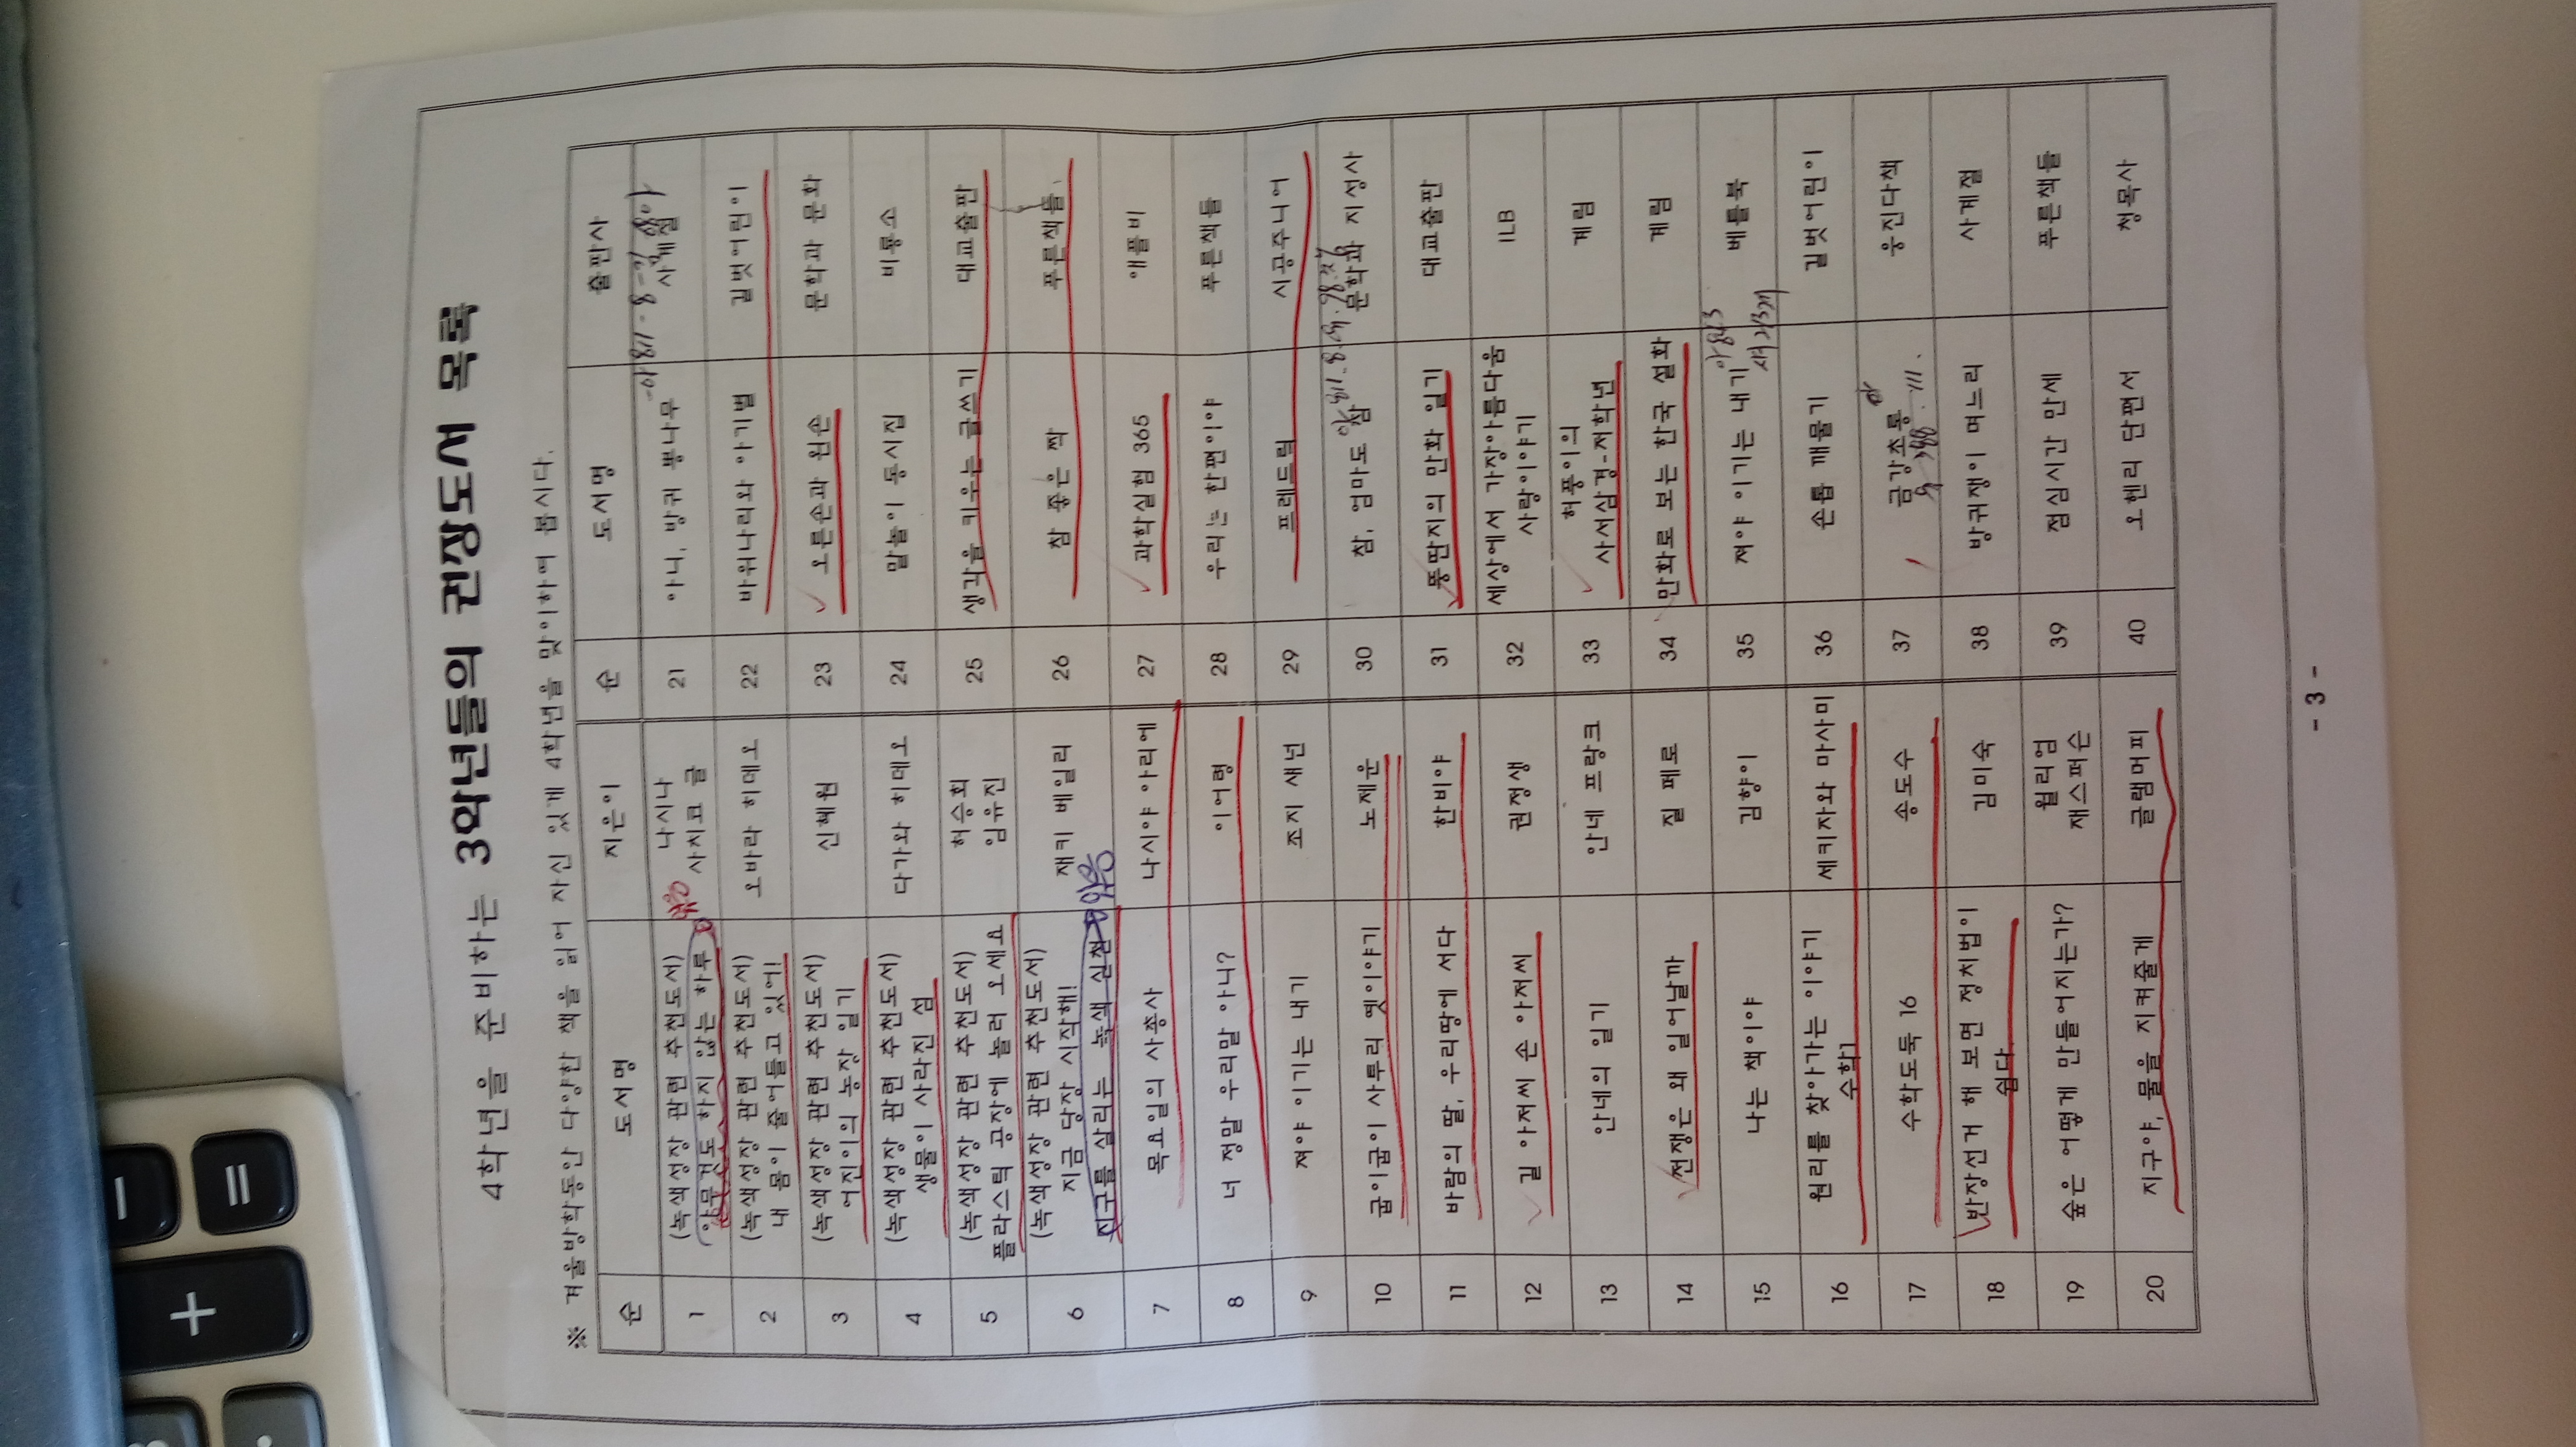 +
−
=
4학년을 준비하는 3학년들의 권장도서 목록
※ 겨울방학동안 다양한 책을 읽어 자신 있게 4학년을 맞이하여 봅시다.
순 도서명 지은이 순 도서명 출판사
1 (녹색성장 관련 추천도서) 아무것도 하지 않는 하루 있음 나시나 사치코 글 21 아니, 방귀 뽕나무 사계절
2 (녹색성장 관련 추천도서) 내 몸이 줄어들고 있어! 오바라 히데오 22 바위나리와 아기별 길벗어린이
3 (녹색성장 관련 추천도서) 어진이의 농장 일기 신혜원 23 오른손과 왼손 문학과 문화
4 (녹색성장 관련 추천도서) 생물이 사라진 섬 다가와 히데오 24 말놀이 동시집 비룡소
5 (녹색성장 관련 추천도서) 플라스틱 공장에 놀러 오세요 허승회 임유진 25 생각을 키우는 글쓰기 대교출판
6 (녹색성장 관련 추천도서) 지금 당장 시작해! 지구를 살리는 녹색 실천 있음 재키 베일리 26 참 좋은 짝 푸른책들
7 목요일의 사총사 나시야 아리에 27 과학실험 365 애플비
8 너 정말 우리말 아니? 이어령 28 우리는 한편이야 푸른책들
9 져야 이기는 내기 조지 섀넌 29 프레드릭 시공주니어
10 굽이굽이 사투리 옛이야기 노제운 30 참, 엄마도 참 문학과 지성사
11 바람의 딸, 우리땅에 서다 한비야 31 뚱딴지의 만화 일기 대교출판
12 길 아저씨 손 아저씨 권정생 32 세상에서 가장아름다움 사랑이야기 ILB
13 안네의 일기 안네 프랑크 33 허풍이의 사서삼경-저학년 계림
14 전쟁은 왜 일어날까 질 페로 34 만화로 보는 한국 설화 계림
15 나는 책이야 김향이 35 져야 이기는 내기 베틀북
16 원리를 찾아가는 이야기 수학1 세키자와 마사미 36 손톱 깨물기 길벗어린이
17 수학도둑 16 송도수 37 금강초롱 웅진다책
18 반장선거 해 보면 정치법이 쉽다. 김미숙 38 방귀쟁이 며느리 사계절
19 숲은 어떻게 만들어지는가? 윌리엄 재스퍼슨 39 점심시간 만세 푸른책들
20 지구야, 물을 지켜줄게 글램머피 40 오헨리 단편서 청목사
- 3 -